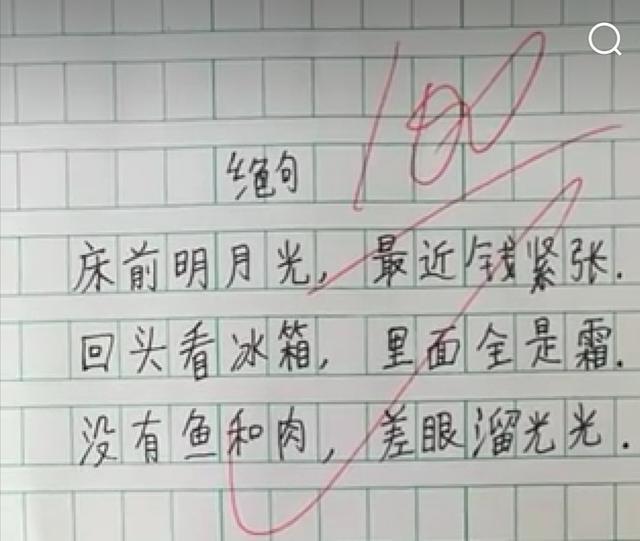 100
绝句
床前明月光，最近钱紧张.
回头看冰箱，里面全是霜.
没有鱼和肉，差眼溜光光.